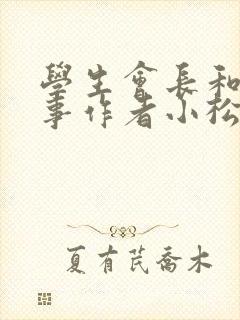 學生會長和
事作者小松
夏有芘喬木